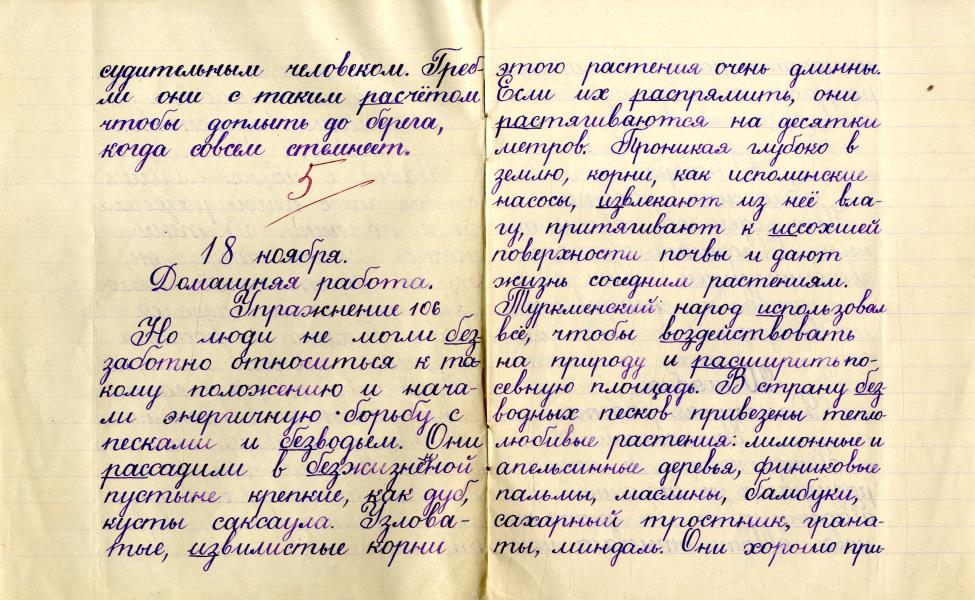 судительным человеком. Греб-
ли они с таким расчётом
чтобы доплыть до берега,
когда совсем стемнеет.
5
18 ноября.
Домашняя работа.
Упражнение 106
Но люди не могли без-
заботно относиться к та-
кому положению и нача-
ли энергичную борьбу с
песками и безводьем. Они
рассадили в безжизненной
пустыне крепкие, как дуб,
кусты саксаула. Узлова-
тые, извилистые корни
этого растения очень длинны.
Если их распрямить, они
растягиваются на десятки
метров. Проникая глубоко в
землю, корни, как исполинские
насосы, извлекают из неё вла-
гу, притягивают к иссохшей
поверхности почвы и дают
жизнь соседним растениям.
Туркменский народ использовал
всё, чтобы воздействовать
на природу и расширить по-
севную площадь. В страну без-
водных песков привезены тепло
любивые растения: лимонные и
апельсинные деревья, финиковые
пальмы, маслины, бамбуки,
сахарный тростник, грана-
ты, миндаль. Они хорошо при-